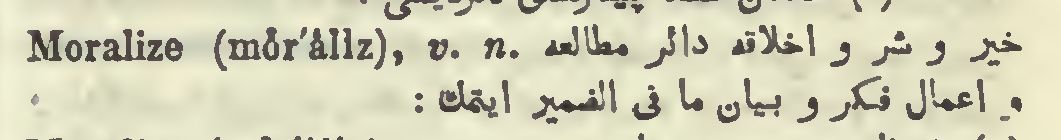 Moralize (mŏr'ălīz), v. n. خیر و شر و اخلاقه دائر مطالعه
و اعمال فكر و بیان ما فی الضمیر ایتمك :